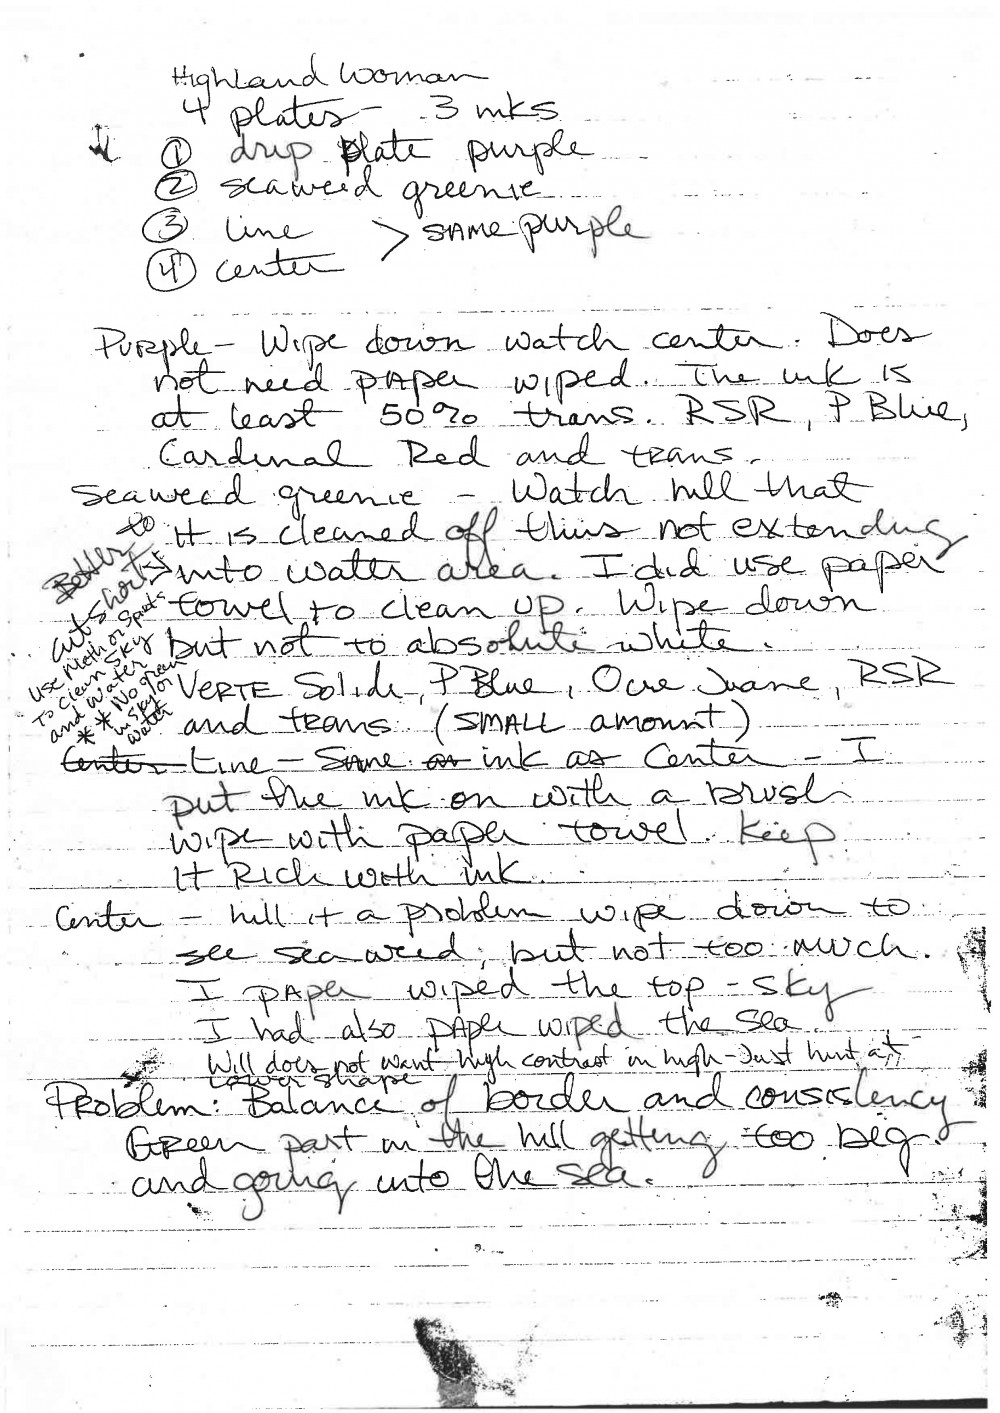 Highland Woman
4 plates - 3 inks
① drip plate purple
② seaweed greenie
③ Line > SAME purple
④ center
Purple - Wipe down watch center. Does
not need paper wiped. The ink is
at least 50% trans. RSR, P Blue,
Cardinal Red and trans.
Seaweed greenie - Watch hill that
it is cleaned off thus not extending
into water area. I did use paper
towel to clean up. Wipe down
but not to absolute white.
VERTE Solide, P Blue, Ocre Juane, RSR
and trans. (SMALL amount)
Better to
cut short
use Meth or Spirits
to clean sky
and water
** No green
in sky or
water
Center Line - Same as ink as Center - I
put the ink on with a brush
wipe with paper towel. Keep
it Rich with ink.
Center - hill it a problem wipe down to
see seaweed, but not too much.
I paper wiped the top - sky
I had also paper wiped the sea.
Will does not want high contrast in high - Just hint at
Lower shape
Problem: Balance of border and consistency
Green part in the hill getting too big
and going into the sea.